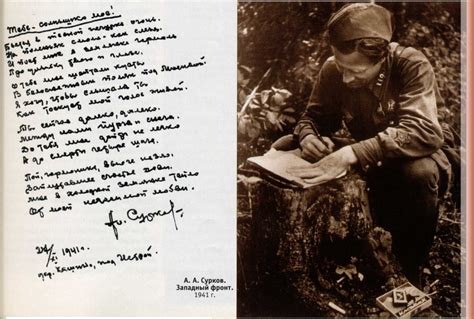 Тебе - солнышко моё!
Бьется в тесной печурке огонь.
На поленьях смола, как слеза.
И поет мне в землянке гармонь
Про улыбку твою и глаза.
О тебе мне шептали кусты
В белоснежных полях под Москвой.
Я хочу, чтобы слышала ты
Как тоскует мой голос живой.
Ты сейчас далеко, далеко.
Между нами снега и снега.
До тебя мне дойти не легко
А до смерти четыре шага.
Пой, гармоника, вьюге назло.
Заплутавшее счастье зови.
Мне в холодной землянке тепло
От моей негасимой любви.
А. Сурков
XI 1941 г.
дер. Кашино, под Истрой
А. А. Сурков.
Западный фронт.
1941 г.